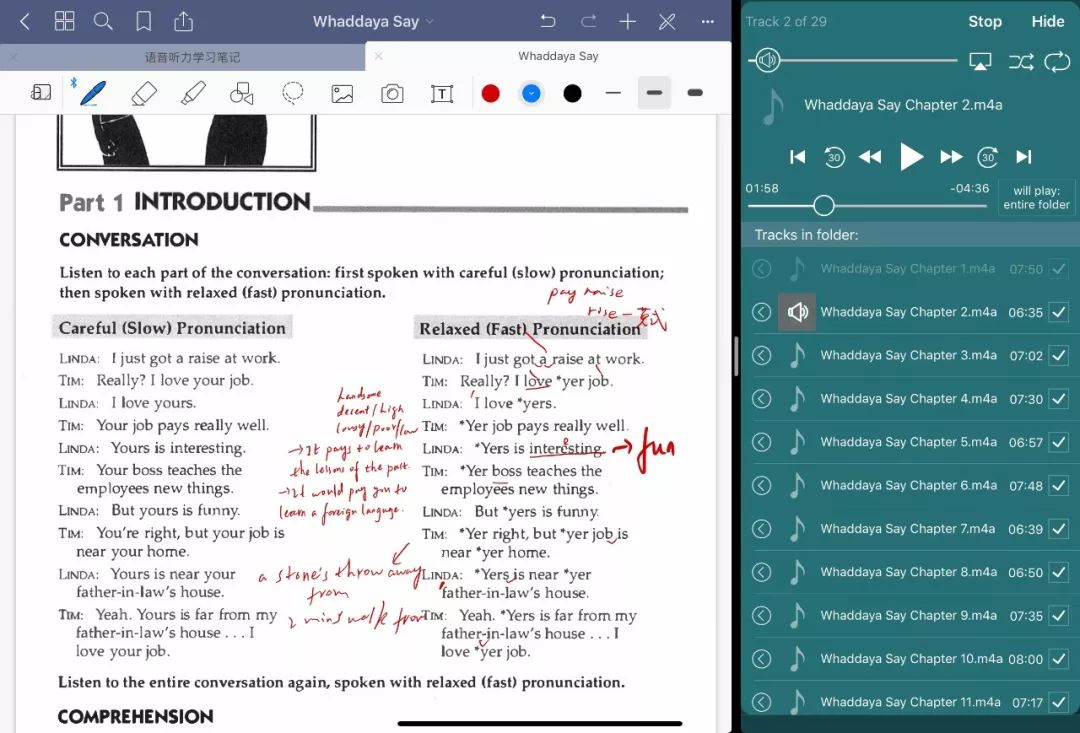 Whaddaya Say
语音听力学习笔记
Whaddaya Say
Part 1 INTRODUCTION
CONVERSATION
Listen to each part of the conversation: first spoken with careful (slow) pronunciation;
then spoken with relaxed (fast) pronunciation.
pay raise
rise - 英式
Careful (Slow) Pronunciation
LINDA: I just got a raise at work.
TIM: Really? I love your job.
LINDA: I love yours.
TIM: Your job pays really well.
LINDA: Yours is interesting.
TIM: Your boss teaches the
employees new things.
LINDA: But yours is funny.
TIM: You're right, but your job is
near your home.
LINDA: Yours is near your
father-in-law's house.
TIM: Yeah. Yours is far from my
father-in-law's house . . . I
love your job.
handsome
decent/high
lousy/poor/low
→It pays to learn
the lessons of the past.
→It would pay you to
learn a foreign language.
a stone's throw away
from
2 mins' walk from
Relaxed (Fast) Pronunciation
LINDA: I just got a raise at work.
TIM: Really? I love *yer job.
LINDA: I love *yers.
TIM: *Yer job pays really well.
LINDA: *Yers is interesting. → fun
TIM: *Yer boss teaches the
employees new things.
LINDA: But *yers is funny.
TIM: *Yer right, but *yer job is
near *yer home.
LINDA: *Yers is near *yer
father-in-law's house.
TIM: Yeah. *Yers is far from my
father-in-law's house . . . I
love *yer job.
Listen to the entire conversation again, spoken with relaxed (fast) pronunciation.
COMPREHENSION
Track 2 of 29 Stop Hide
Whaddaya Say Chapter 2.m4a
30 30
01:58 -04:36
will play:
entire folder
Tracks in folder:
Whaddaya Say Chapter 1.m4a 07:50
Whaddaya Say Chapter 2.m4a 06:35
Whaddaya Say Chapter 3.m4a 07:02
Whaddaya Say Chapter 4.m4a 07:30
Whaddaya Say Chapter 5.m4a 06:57
Whaddaya Say Chapter 6.m4a 07:48
Whaddaya Say Chapter 7.m4a 06:39
Whaddaya Say Chapter 8.m4a 06:50
Whaddaya Say Chapter 9.m4a 07:35
Whaddaya Say Chapter 10.m4a 08:00
Whaddaya Say Chapter 11.m4a 07:17